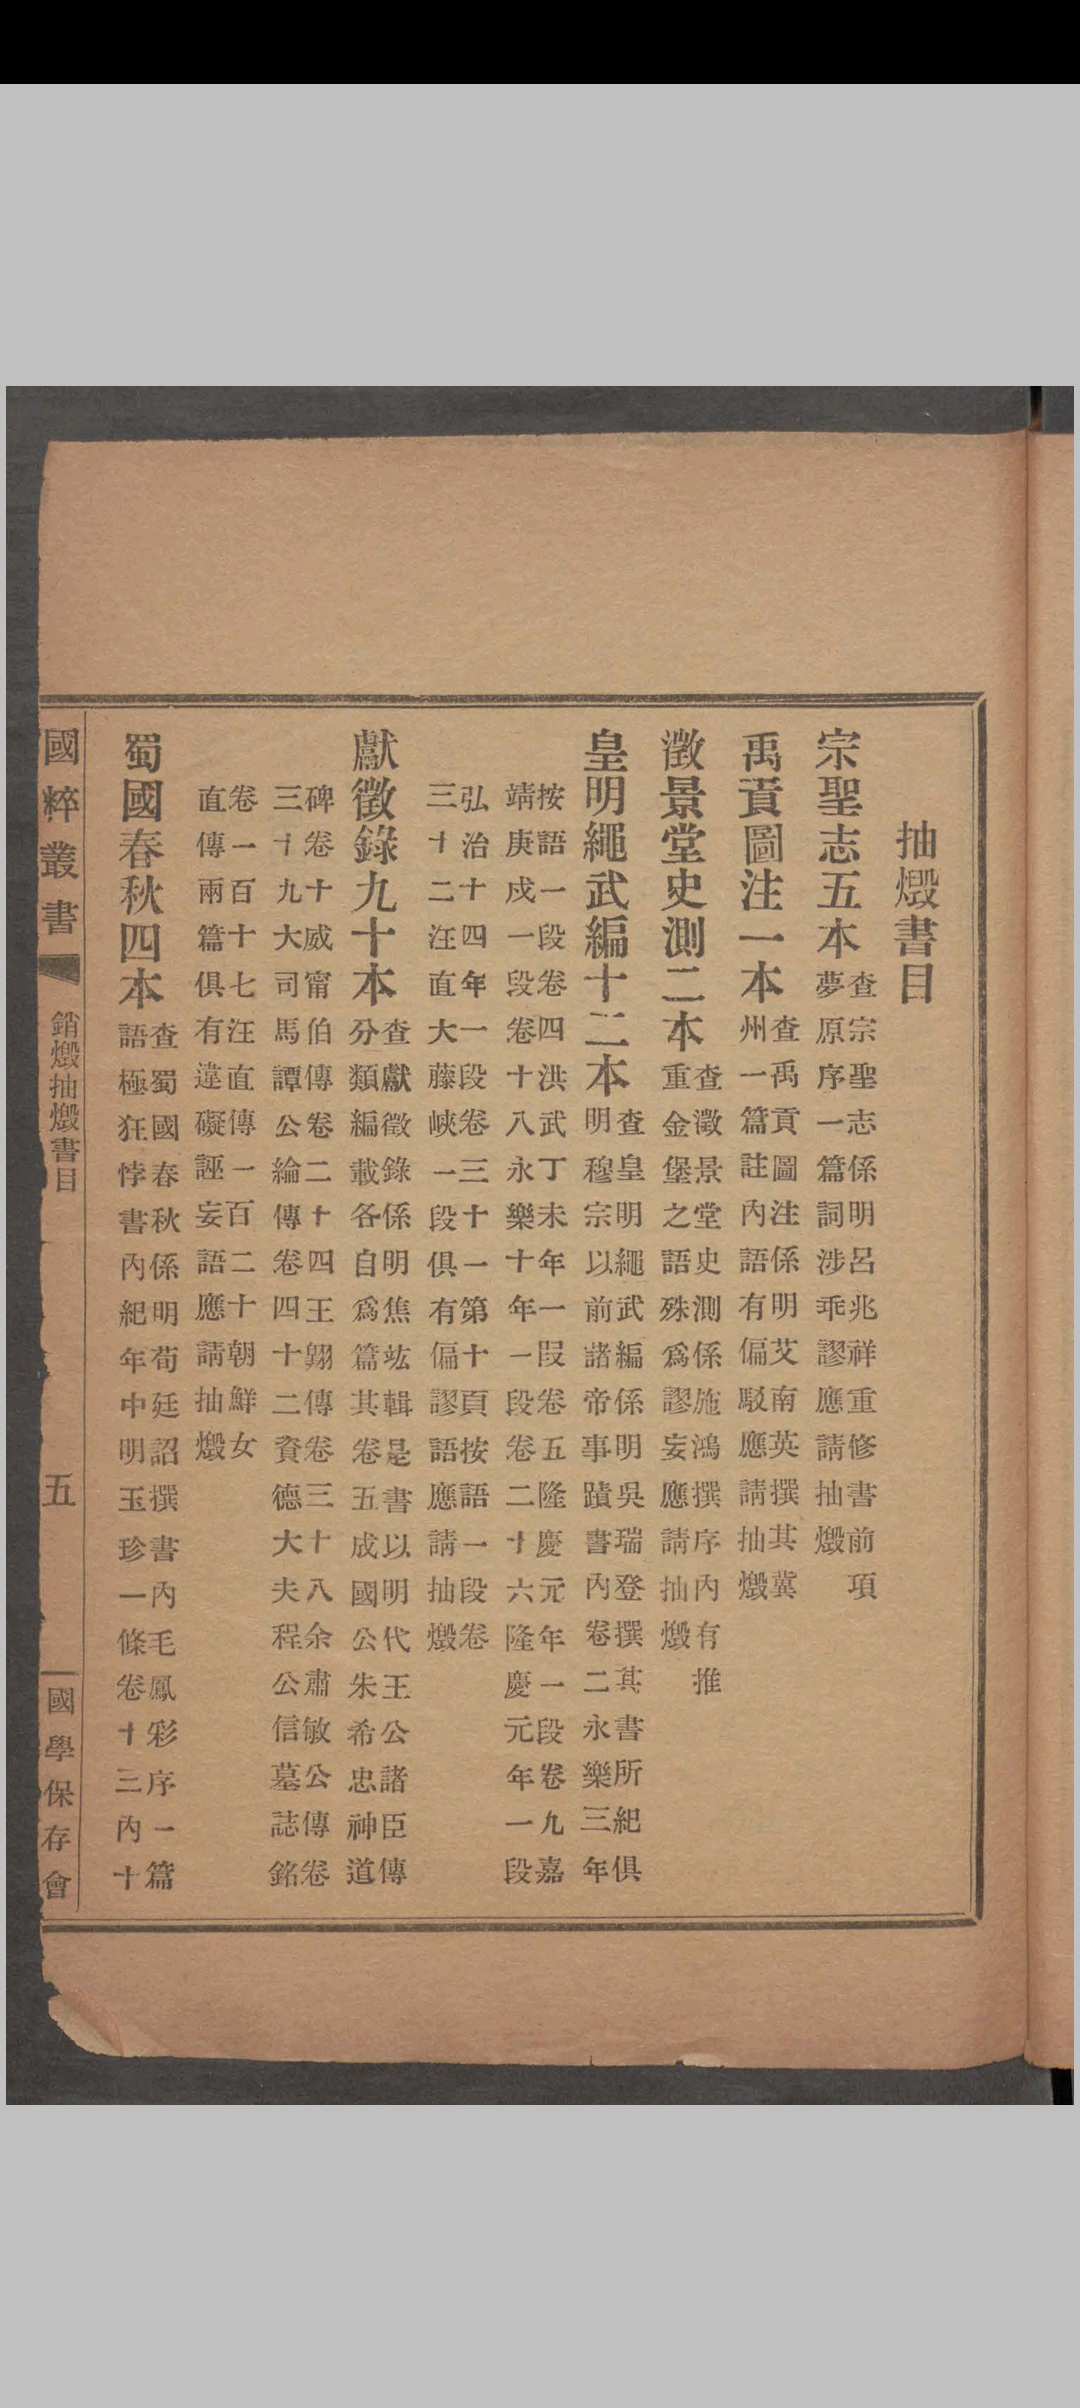 抽燬書目
宗聖志五本
查宗聖志係明呂兆祥重修書前項
夢原序一篇詞涉乖謬應請抽燬
禹貢圖注一本
查禹貢圖注係明艾南英撰其冀
州一篇註內語有偏駁應請抽燬
澂景堂史測二本
查澂景堂史測係施鴻撰序內有推
重金堡之語殊爲謬妄應請抽燬
皇明繩武編十二本
查皇明繩武編係明吳瑞登撰其書所紀俱
明穆宗以前諸帝事蹟書內卷二永樂三年
按語一段卷四洪武丁未年一段卷五隆慶元年一段卷九嘉
靖庚戌一段卷十八永樂十年一段卷二十六隆慶元年一段
弘治十四年一段卷三十一第十頁按語一段卷
三十二汪直大藤峽一段俱有偏謬語應請抽燬
獻徵錄九十本
查獻徵錄係明焦竑輯是書以明代王公諸臣傳
分類編載各自爲篇其卷五成國公朱希忠神道
碑卷十威甯伯傳卷二十四王翺傳卷三十八余肅敏公傳卷
三十九大司馬譚公綸傳卷四十二資德大夫程公信墓誌銘
卷一百十七汪直傳一百二十朝鮮女
直傳兩篇俱有違礙誣妄語應請抽燬
蜀國春秋四本
查蜀國春秋係明荀廷詔撰書內毛鳳彩序一篇
語極狂悖書內紀年中明玉珍一條卷十三內十
國粹叢書
銷燬抽燬書目
五
國學保存會